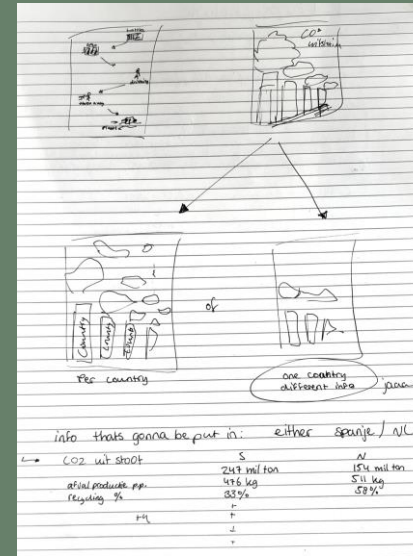 CO²
uitstoot
Country
Country
Per country
of
one country
different info
jaaa
info thats gonna be put in: either Spanje / NL
CO2 uit stoot
S
N
247 mil ton
154 mil ton
afval productie p.p.
476 kg
511 kg
recycling %
33%
58%
+4
+
+
+
+